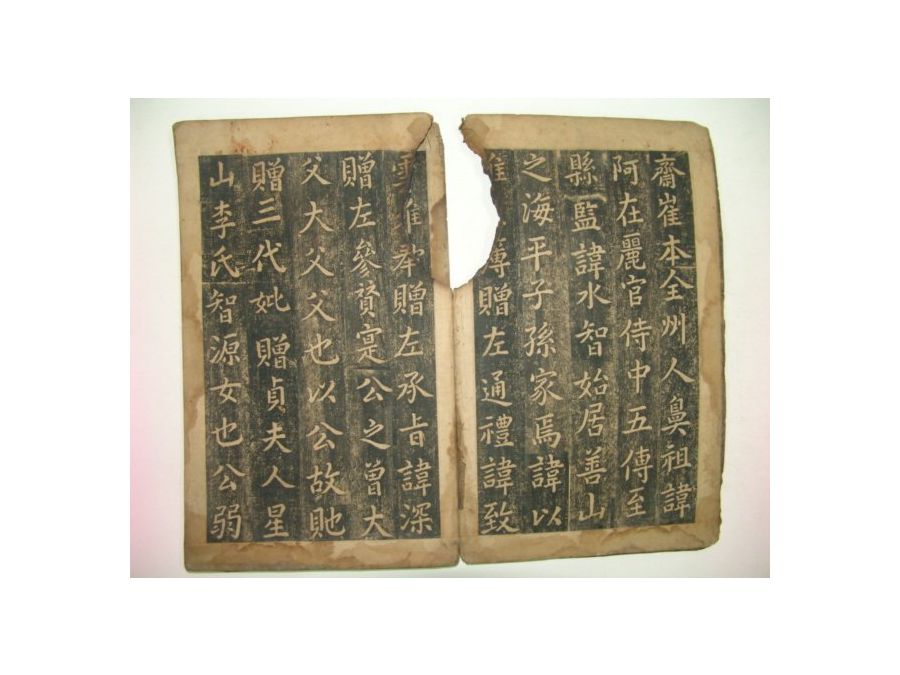 齋崔本全州人鼻祖諱
阿在麗官侍中五傳至
縣監諱水智始居善山
之海平子孫家焉諱以
贈左通禮諱致
雲準牟贈左承旨諱深
贈左參贊寔公之曾大
父大父父也以公故貤
贈三代妣贈貞夫人星
山李氏智源女也公弱